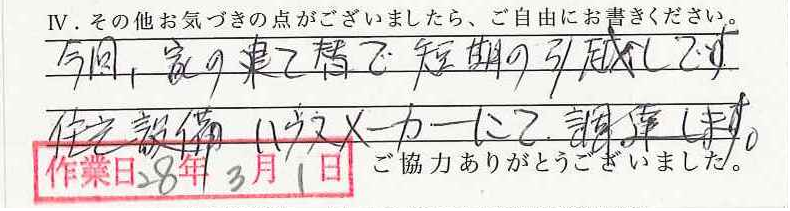 Ⅳ．その他お気づきの点がございましたら、ご自由にお書きください。
今回，家の建て替で短期の引越しです
住宅設備ハウスメーカーにて．調達します。
作業日28年3月1日 ご協力ありがとうございました。